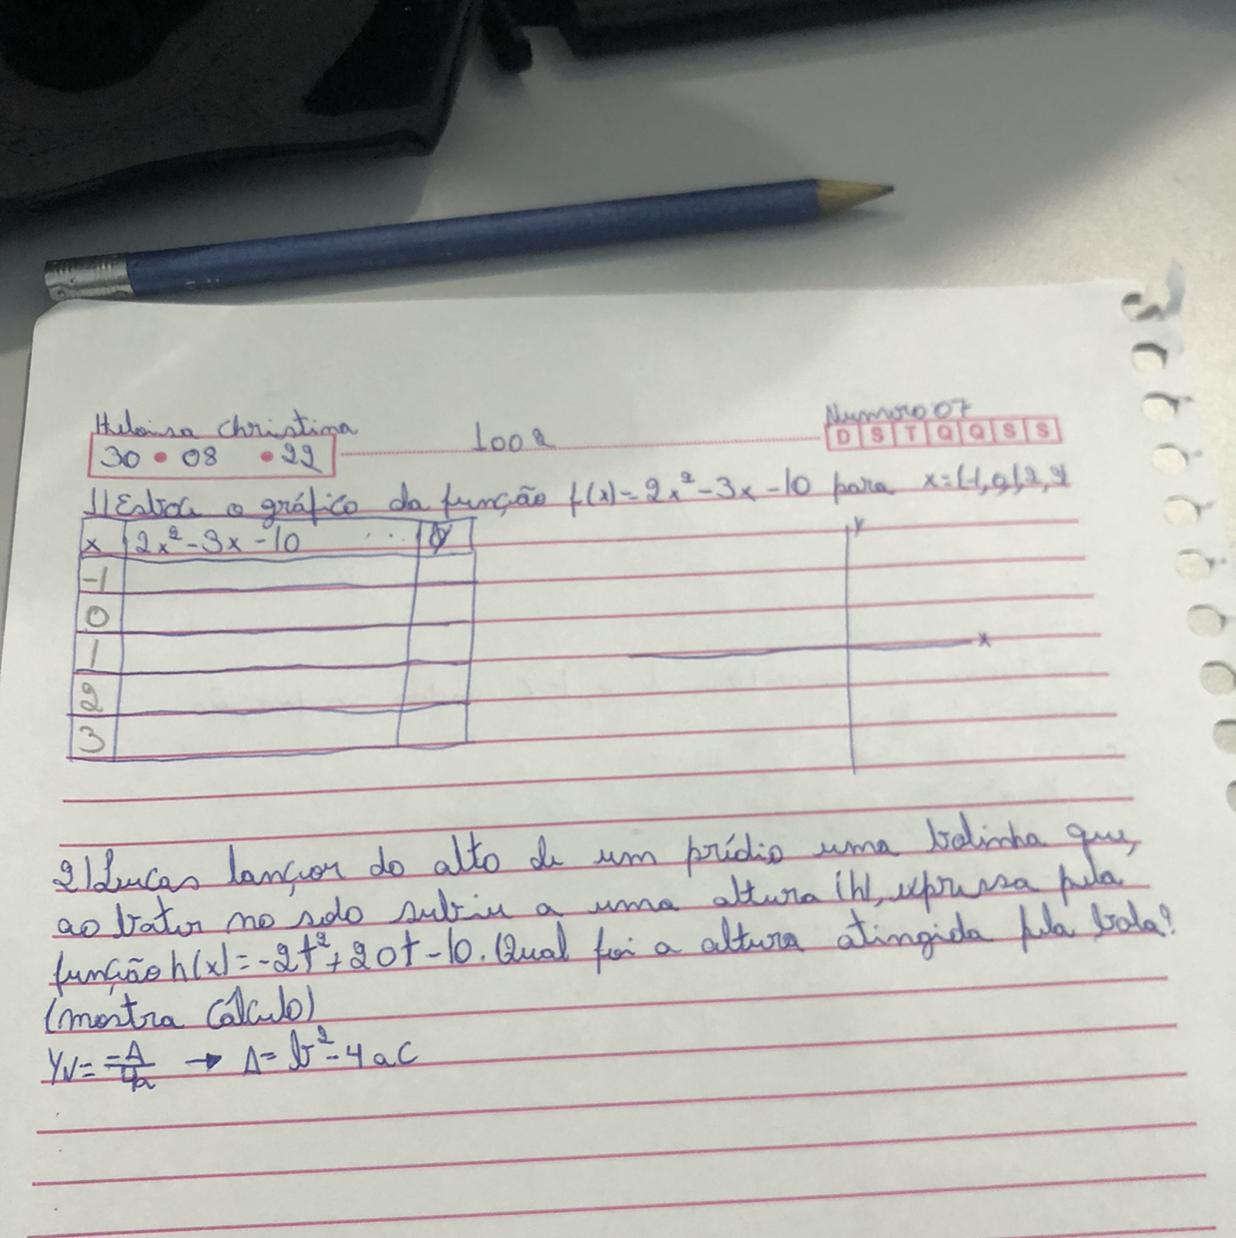 Heloisa Christina
Numero 07
1002
D S T Q Q S S
30 • 08 • 22
1) Esboce o gráfico da função f(x) = 2x² - 3x - 10 para
x 2x² - 3x - 10 ... y
y
-1
0
1
x
2
3
2) Lucas lançou do alto de um prédio uma bolinha que,
ao bater no solo subiu a uma altura (h), expressa pela
função h(x) = -2t² + 20t - 10. Qual foi a altura atingida pela bola?
(mostra cálculo)
Yv = -Δ/4a → Δ = b² - 4ac